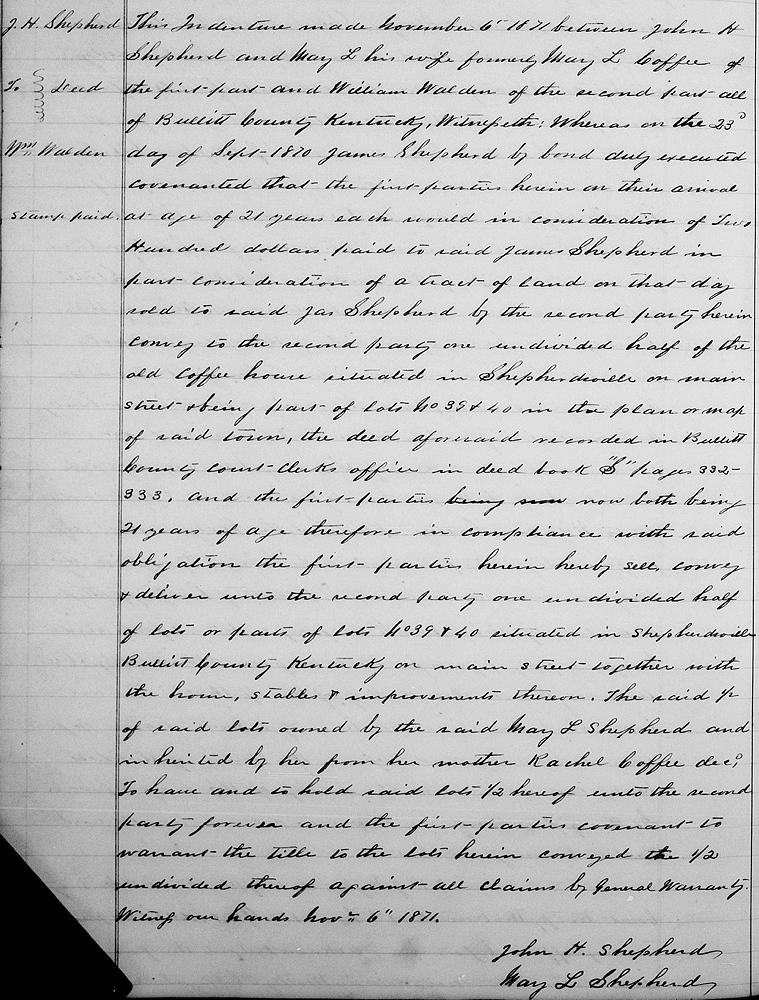 J. H. Shepherd
To } Deed
Wm Walden
Stamp paid.
This Indenture made November 6" 1871 between John H
Shepherd and May L his wife formerly May L Coffee of
the first part and William Walden of the second part all
of Bullitt County Kentucky, Witnesseth: Whereas on the 23d
day of Sept 1870 James Shepherd by bond duly executed
covenanted that the first parties herein on their arrival
at age of 21 years each would in consideration of Two
Hundred dollars paid to said James Shepherd in
part consideration of a tract of land on that day
sold to said Jas Shepherd by the second party herein
convey to the second party one undivided half of the
old Coffee house situated in Shepherdsville on main
street & being part of lots No 39 & 40 in the plan or map
of said town, the deed aforesaid recorded in Bullitt
County court Clerks office in deed book "S" pages 332-
333. and the first parties being now now both being
21 years of age therefore in compliance with said
obligation the first parties herein hereby sell, convey
& deliver unto the second party one undivided half
of lots or parts of lots No 39 & 40 situated in Shepherdsville
Bullitt County Kentucky on main street together with
the house, stables & improvements thereon. The said 1/2
of said lots owned by the said May L Shepherd and
inherited by her from her mother Rachel Coffee decd,
To have and to hold said lots 1/2 hereof unto the second
party forever and the first parties covenant to
warrant the title to the lots herein conveyed the 1/2
undivided thereof against all claims by General Warranty.
Witness our hands Novr 6" 1871.
John H. Shepherd
May L Shepherd